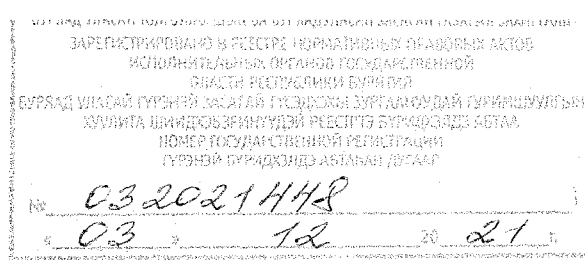 ЗАРЕГИСТРИРОВАНО В РЕЕСТРЕ НОРМАТИВНЫХ ПРАВОВЫХ АКТОВ
ИСПОЛНИТЕЛЬНЫХ ОРГАНОВ ГОСУДАРСТВЕННОЙ
ВЛАСТИ РЕСПУБЛИКИ БУРЯТИЯ
БУРЯАД УЛАСАЙ ГҮРЭНЭЙ ЗАСАГАЙ ГҮСЭДХЭХЫ ЗУРГААНУУДАЙ ГУРИМШУУЛГЫН
ХУУЛИТА ШИИДХЭБЭРИНҮҮДЭЙ РЕЕСТРТЭ БҮРИДХЭЛДЭ АБТАА
НОМЕР ГОСУДАРСТВЕННОЙ РЕГИСТРАЦИИ
ГҮРЭНЭЙ БҮРИДХЭЛДЭ АБТАҺАН ДУГААР
№ 032021448
«03» 12 2021 г.